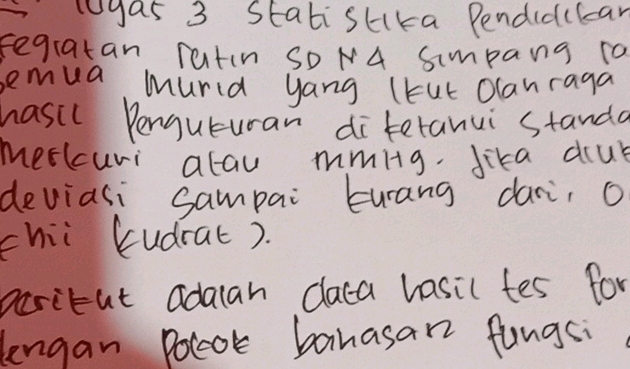 Tugas 3 Statistika Pendidikan
Kegiatan rutin SD N 4 Simpang
semua murid yang ikut olahraga
hasil Pengukuran diketahui standa
merkuri atau mmHg. Jika diuk
deviasi sampai kurang dari, 0
chii kudrat).
berikut adalah data hasil tes for
dengan Pokok bahasan fungsi